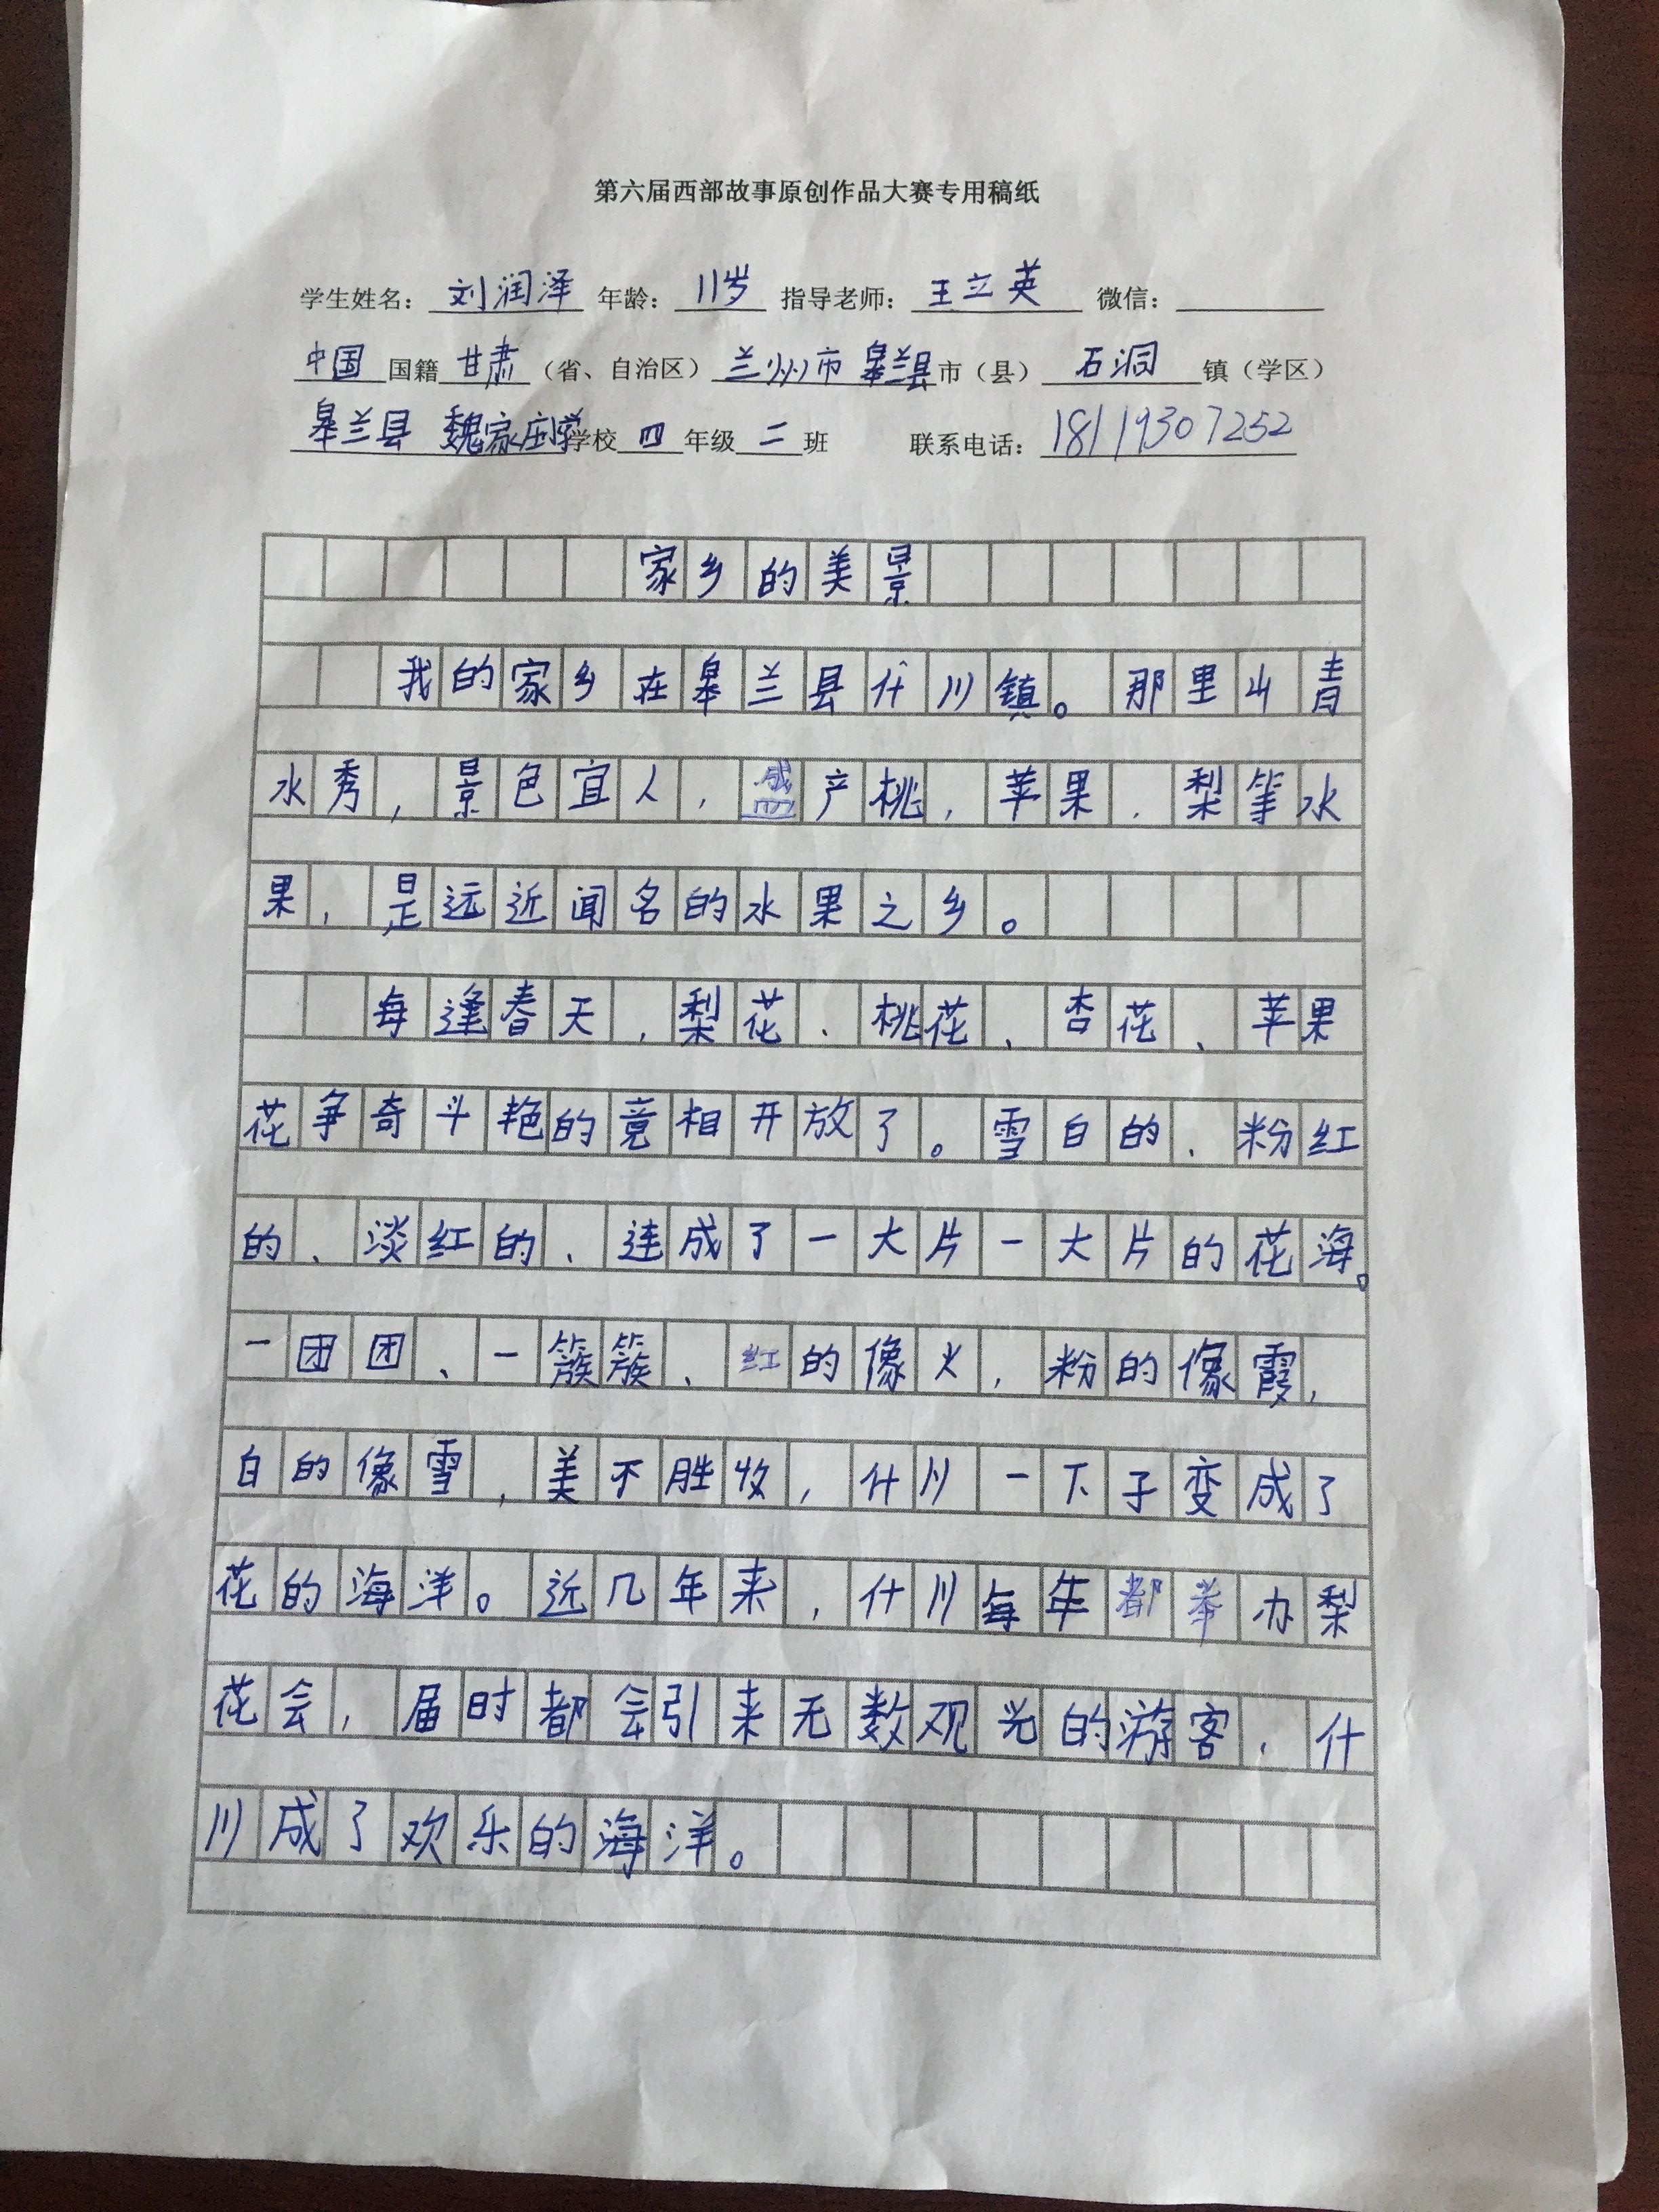 第六届西部故事原创作品大赛专用稿纸
学生姓名：刘润泽 年龄：11岁 指导老师：王立英 微信：
中国国籍甘肃（省、自治区）兰州市皋兰县市（县）石洞镇（学区）
皋兰县魏家庄小学学校四年级二班 联系电话：18119307252
家乡的美景
我的家乡在皋兰县什川镇。那里山青
水秀，景色宜人，盛产桃，苹果，梨等水
果，是远近闻名的水果之乡。
每逢春天，梨花、桃花、杏花、苹果
花争奇斗艳的竟相开放了。雪白的、粉红
的、淡红的、连成了一大片一大片的花海。
一团团、一簇簇、红的像火，粉的像霞，
白的像雪，美不胜收，什川一下子变成了
花的海洋。近几年来，什川每年都举办梨
花会，届时都会引来无数观光的游客，什
川成了欢乐的海洋。